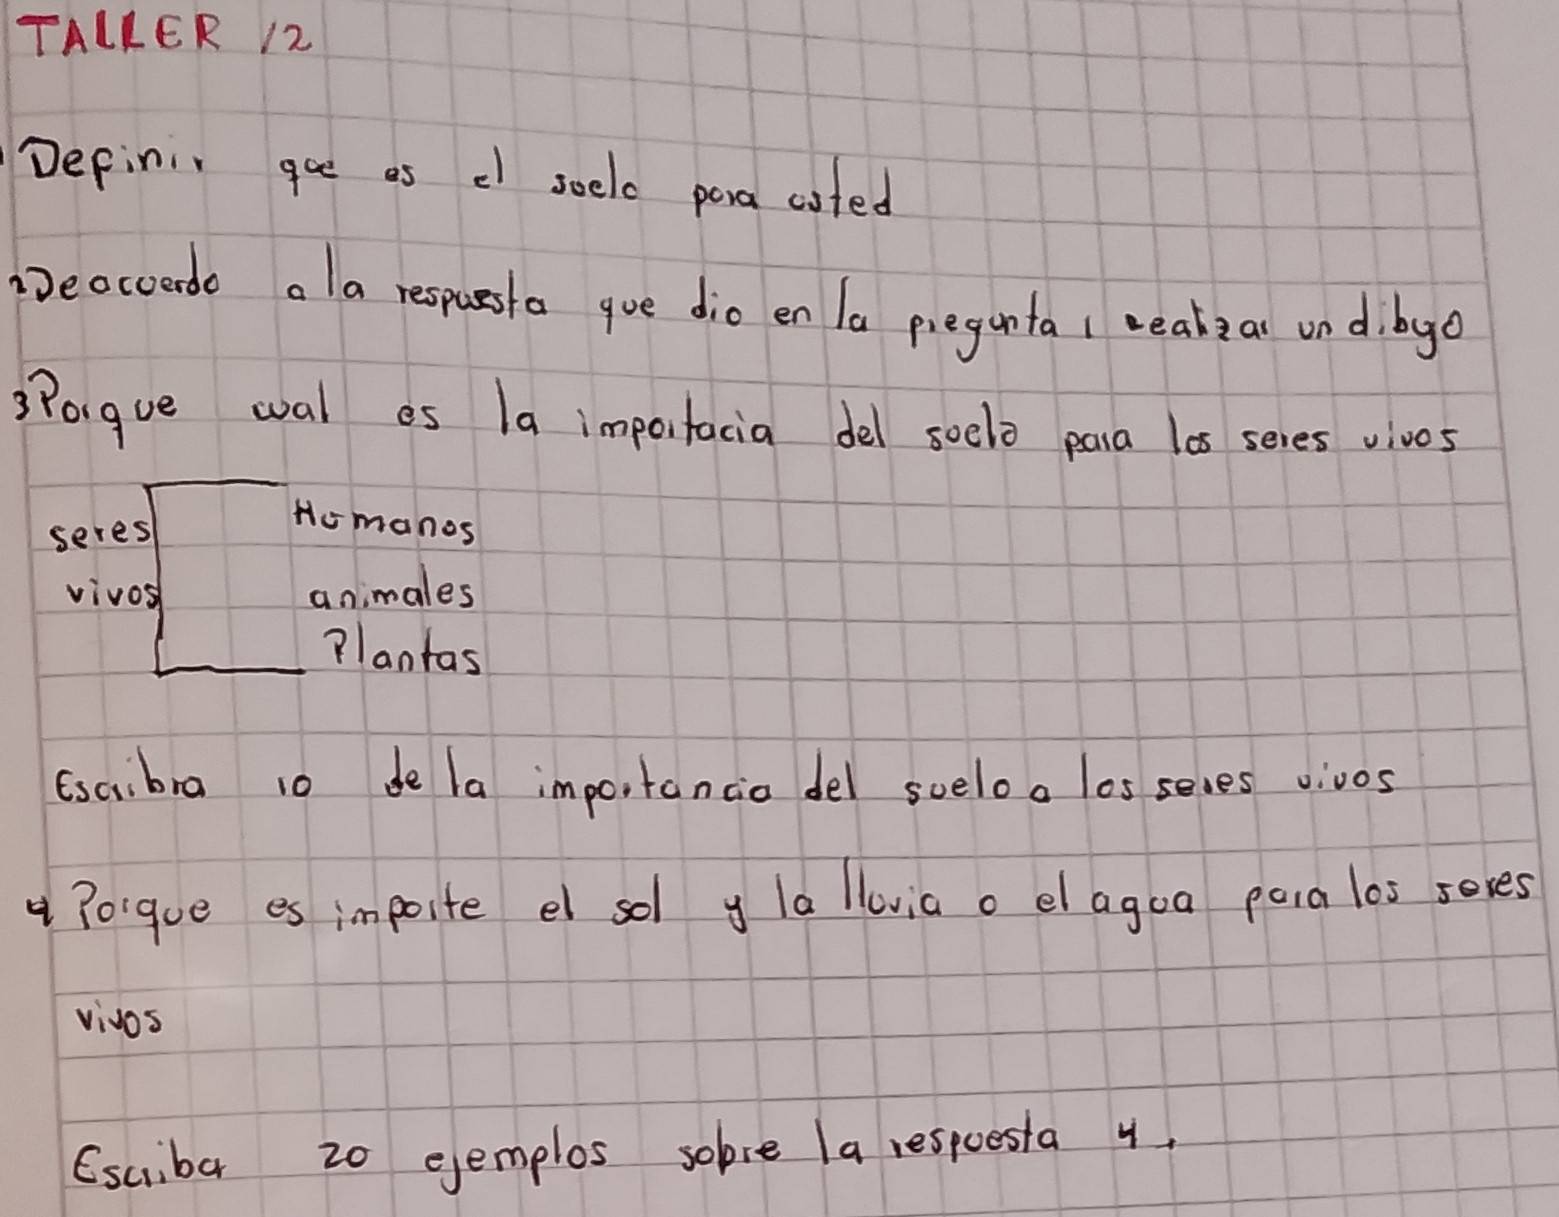 TALLER 12
Definir que es el suelo para usted
2 Deacuerdo a la respuesta que dio en la pregunta 1 realizar un dibujo
3 Porque cual es la importacia del suelo para los seres vivos
seres Humanos
vivos animales
Plantas
Escribra 10 de la importancia del suelo a los seres vivos
4 Porque es importe el sol y la lluvia o el agua para los seres
vivos
Escriba 20 ejemplos sobre la respuesta 4.